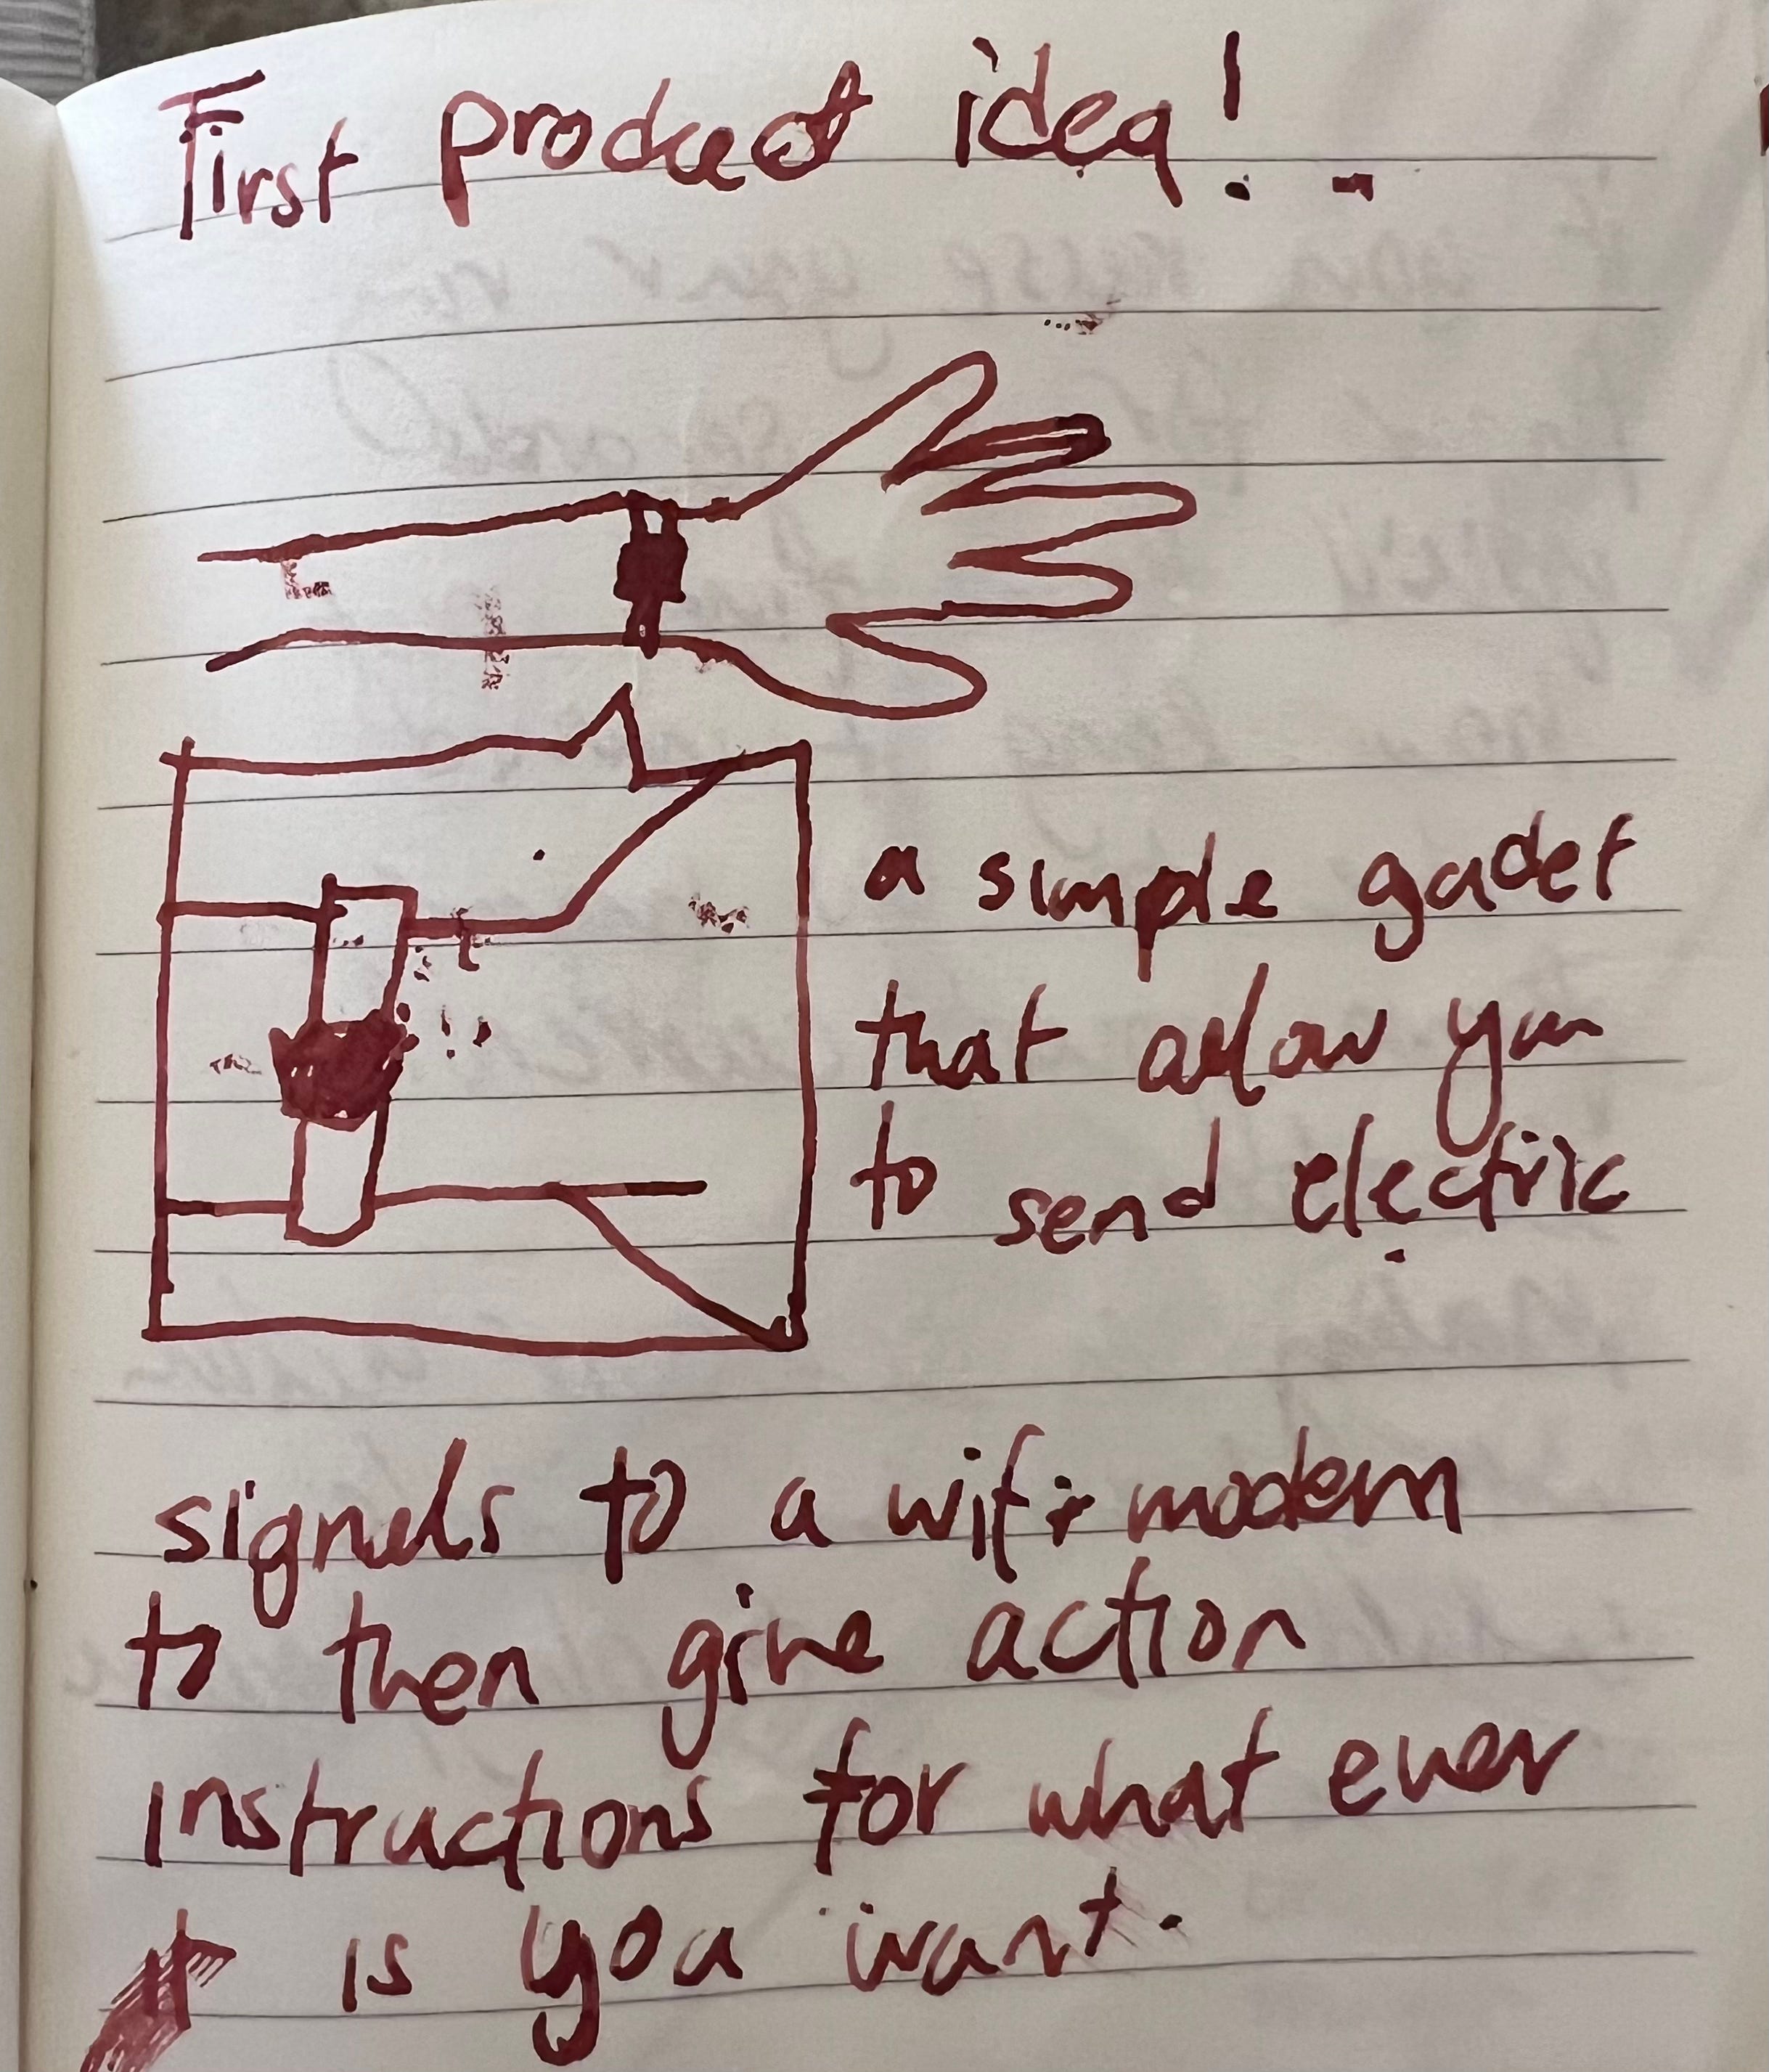 First product idea!
a simple gadet
that allow you
to send electric
signals to a wifi modem
to then give action
instructions for what ever
it is you want.